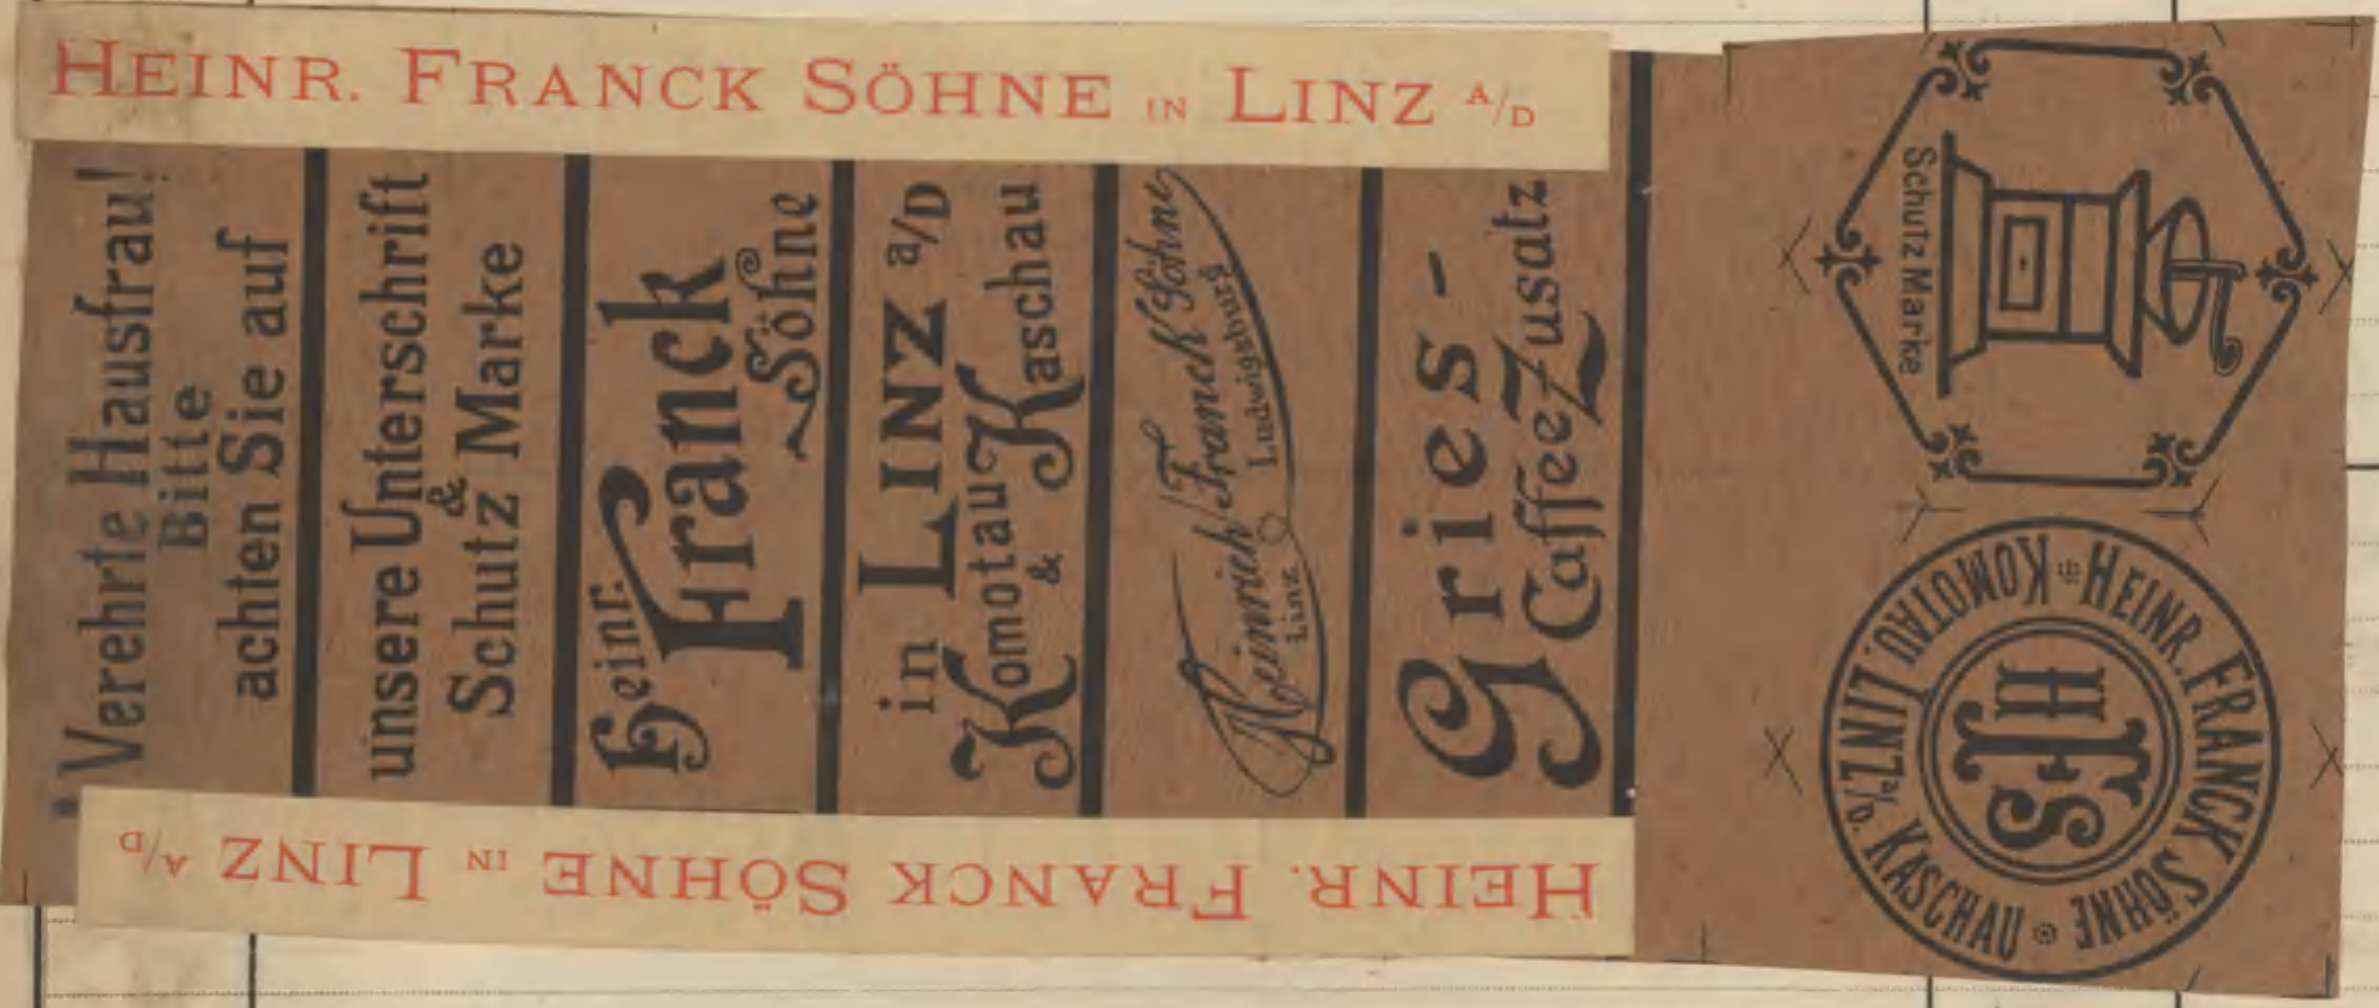 HEINR. FRANCK SÖHNE IN LINZ A/D
Verehrte Hausfrau!
Bitte
achten Sie auf
unsere Unterschrift
&
Schutz Marke
Heinr.
Franck
Söhne
in LINZ a/D
Komotau & Kaschau
Heinrich Franck Söhne
Linz Ludwigsburg
Gries-
Caffee Zusatz
Schutz Marke
HEINR. FRANCK SÖHNE
KOMOTAU. LINZ a/D. KASCHAU
HFS
HEINR. FRANCK SÖHNE IN LINZ A/D